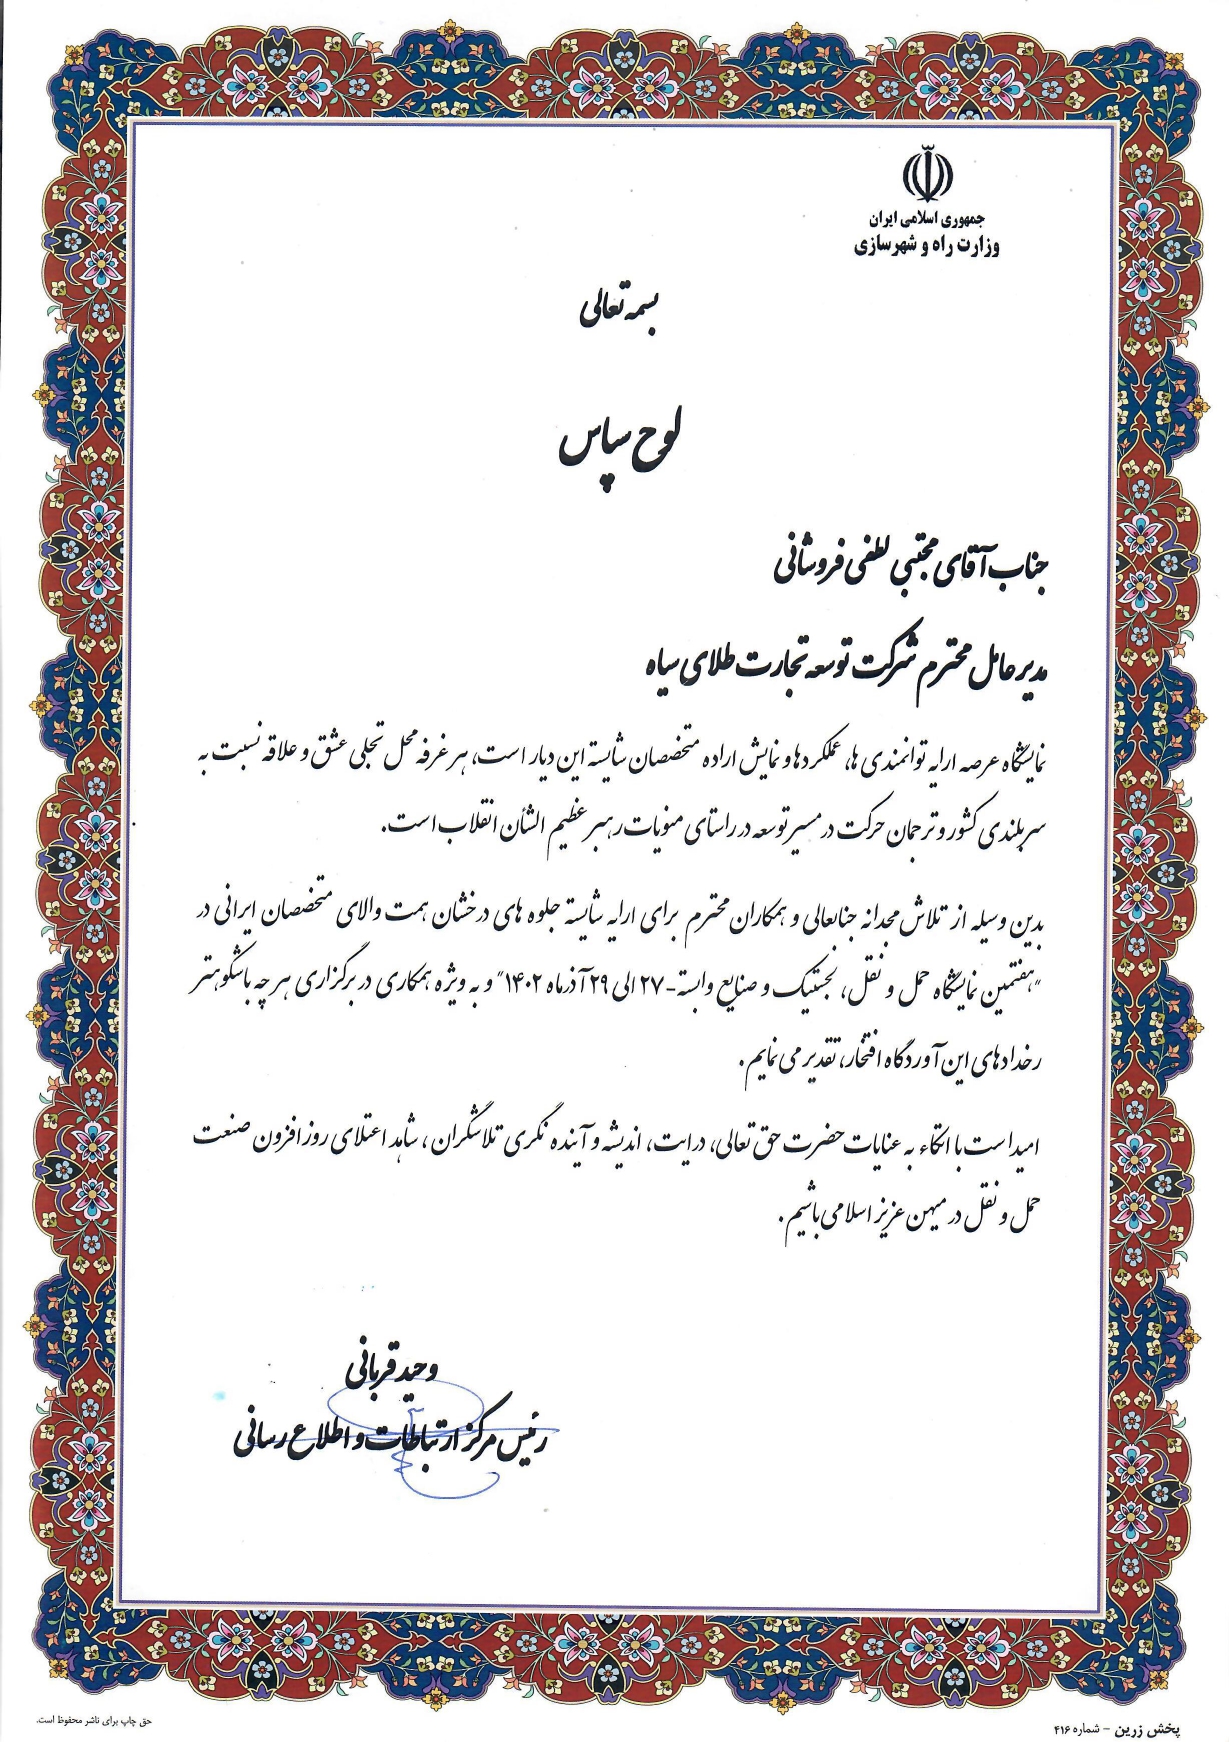 جمهوری اسلامی ایران
وزارت راه و شهرسازی
بسمه تعالی
لوح سپاس
جناب آقای مجتبی لطفی فروشانی
مدیرعامل محترم شرکت توسعه تجارت طلای سیاه
نمایشگاه عرصه ارایه توانمندی ها، عملکردها و نمایش اراده متخصصان شایسته این دیار است، هر غرفه محل تجلی عشق و علاقه نسبت به
سربلندی کشور و ترجمان حرکت در مسیر توسعه در راستای منویات رهبر عظیم الشأن انقلاب است.
بدین وسیله از تلاش مجدانه جنابعالی و همکاران محترم برای ارایه شایسته جلوه های درخشان همت والای متخصصان ایرانی در
"هفتمین نمایشگاه حمل و نقل، لجستیک و صنایع وابسته- ۲۷ الی ۲۹ آذرماه ۱۴۰۲" و به ویژه همکاری در برگزاری هر چه باشکوهتر
رخدادهای این آوردگاه افتخار، تقدیر می نمایم.
امید است با اتکاء به عنایات حضرت حق تعالی، درایت، اندیشه و آینده نگری تلاشگران، شاهد اعتلای روز افزون صنعت
حمل و نقل در میهن عزیز اسلامی باشیم.
وحید قربانی
رئیس مرکز ارتباطات و اطلاع رسانی
پخش زرین – شماره ۴۱۶
حق چاپ برای ناشر محفوظ است.